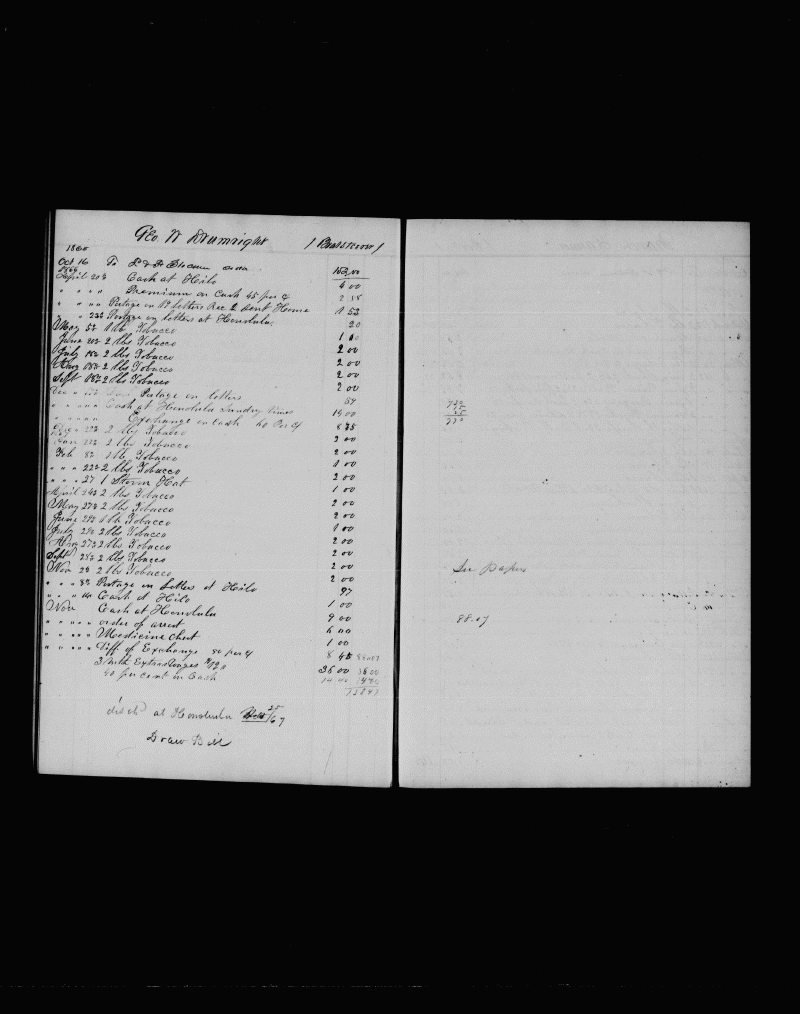 Geo W Drumright / Boatsteerer /
1865
Oct 16 To 103,00
1866
April 20th Cash at Hilo 4 00
" " " Premium on Cash 45 per ct 2 18
" " " Postage on letters Rec & Sent Home 1 52
" 23d Postage on letters at Honolulu 20
May 5th 1 lb Tobacco 1 00
June 20th 2 lbs Tobacco 2 00
July 18th 2 lbs Tobacco 2 00
Aug 18th 2 lbs Tobacco 2 00
Sept 18th 2 lbs Tobacco 2 00
Postage on letters 54
" " " Cash at Honolulu Sundry times 14 00
" " " Exchange on Cash 60 Per ct 8 75
Dec 2 lbs Tobacco 2 00
1867
Jan 2 lbs Tobacco 2 00
Feb 8th 1 lb Tobacco 1 00
" " " 22d 2 lbs Tobacco 2 00
" " " 27 1 Storm Hat 1 00
April 24th 2 lbs Tobacco 2 00
May 27th 2 lbs Tobacco 2 00
June 1 lb Tobacco 1 00
July 2 lbs Tobacco 2 00
Aug 27th 2 lbs Tobacco 2 00
Sept 2 lbs Tobacco 2 00
Nov 2 lbs Tobacco 2 00
" " " 8th Postage on Letters at Hilo 97
" " " Cash at Hilo 1 00
Nov Cash at Honolulu 9 00
" " " " order of arrest 6 00
" " " " Medicine Chest 1 00
" " " " Diff of Exchange per ct 8 45
3 36 00
40 per cent on Cash 14 40
disch'd at Honolulu 25/67
Draw Bill
See papers
98.07